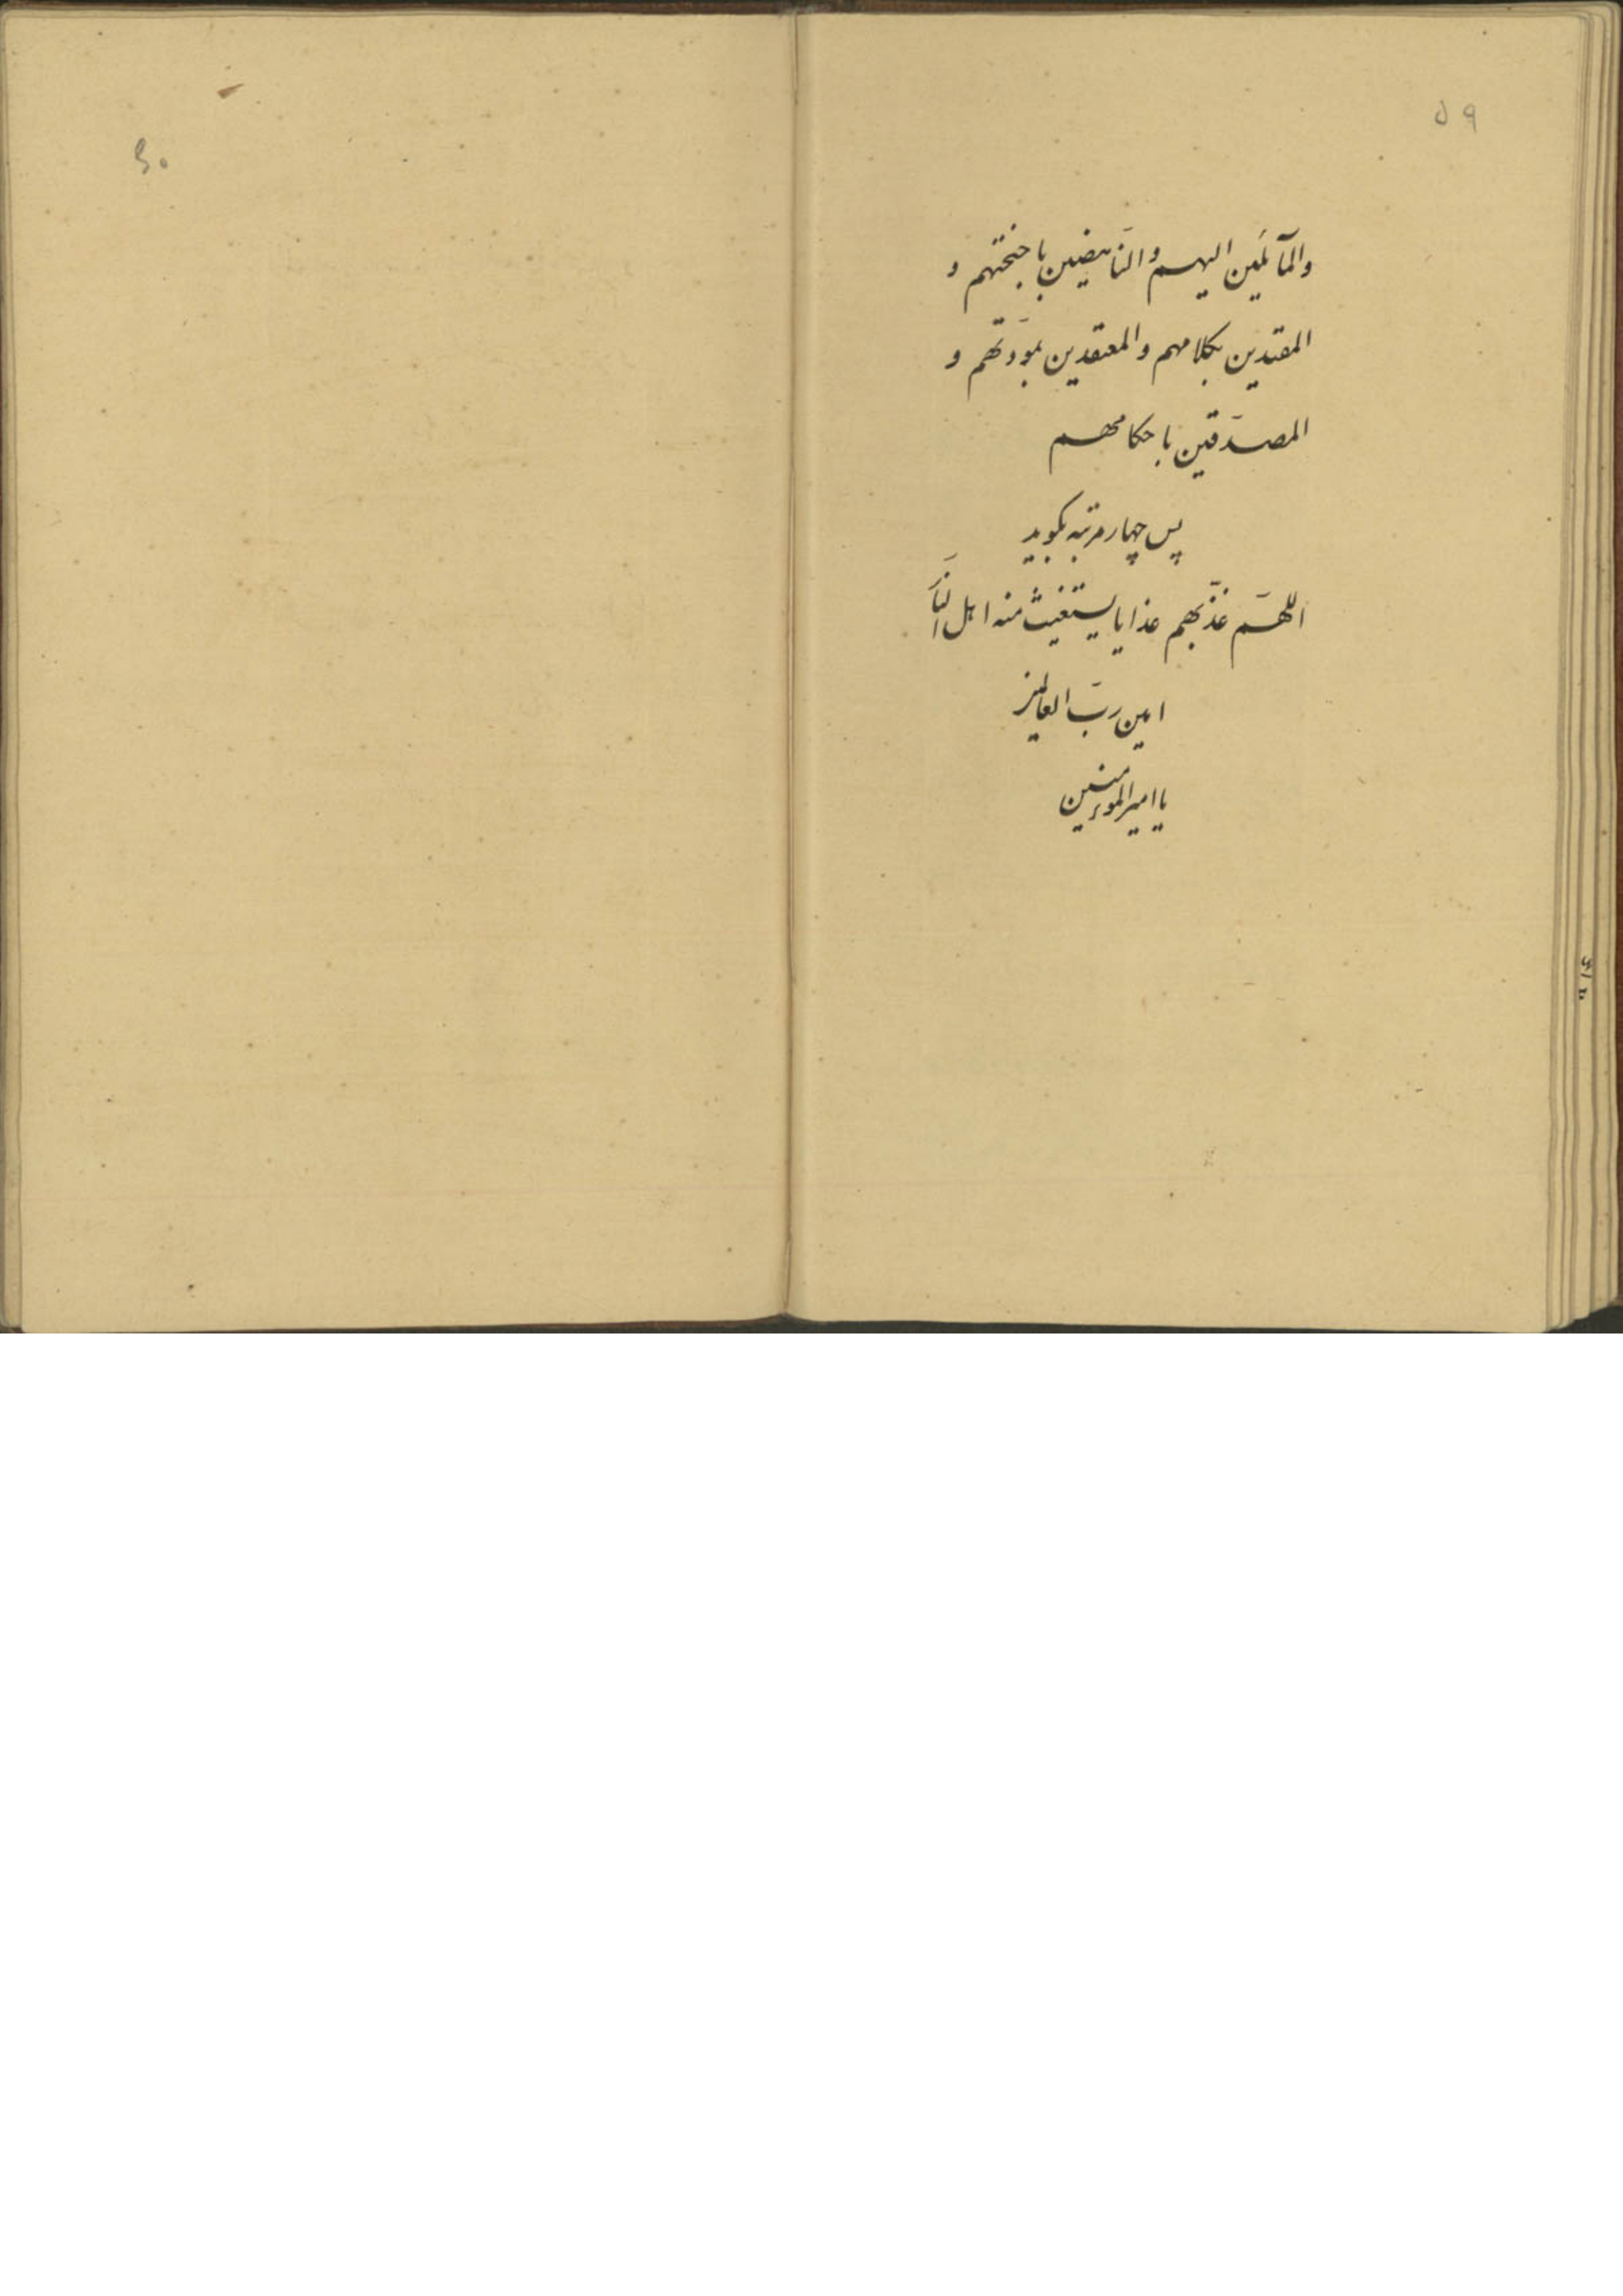 ۵۹
والمآئلین الیهم والنّاهضین باجنحتهم و
المقتدین بکلامهم والمعتقدین بمودّتهم و
المصدّقین باحکامهم
پس چهار مرتبه بگوید
اللهمّ عذّبهم عذابا یستغیث منه اهل النّار
امین ربّ العالمین
یا امیر المؤمنین
۶۰